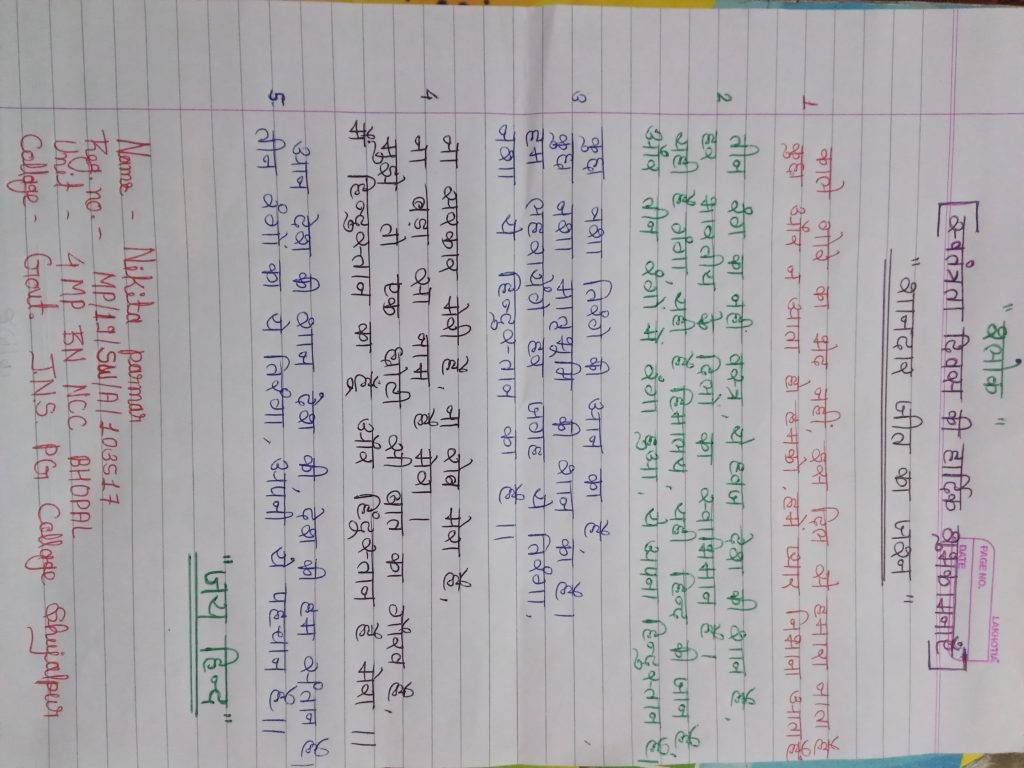 PAGE NO.
DATE
LAKHOTIA
"श्लोक"
[स्वतंत्रता दिवस की हार्दिक शुभकामनाएँ]
"शानदार जीत का जश्न"
1 काले गोरे का भेद नहीं, इस दिल से हमारा नाता है
कुछ और न आता हो हमको, हमें प्यार निभाना आता है
2 तीन रंग का नही वस्त्र, ये ध्वज देश की शान है,
हर भारतीय के दिलो का स्वाभिमान है।
यही है गंगा, यही है हिमालय, यही हिन्द की जान है
और तीन रंगों में रंगा हुआ, ये अपना हिन्दुस्तान है।
3 कुछ नशा तिरंगे की आन का है,
कुछ नशा मातृभूमि की शान का है।
हम लहरायेंगे हर जगह ये तिरंगा,
नशा ये हिन्दुस्तान का है।।
4 ना सरकार मेरी है, ना रौब मेरा है,
ना बड़ा सा नाम है मेरा।
मुझे तो एक छोटी सी बात का गौरव है,
मैं हिन्दुस्तान का हूँ और हिंदुस्तान है मेरा ।।
5 आन देश की शान देश की, देश की हम संतान है।
तीन रंगो का ये तिरंगा, अपनी ये पहचान है।।
"जय हिन्द"
Name - Nikita parmar
Reg. no. - MP/19/SW/A/103517
Unit - 4 MP BN NCC BHOPAL
Callage - Gout. JNS. PG Callage Shujalpur